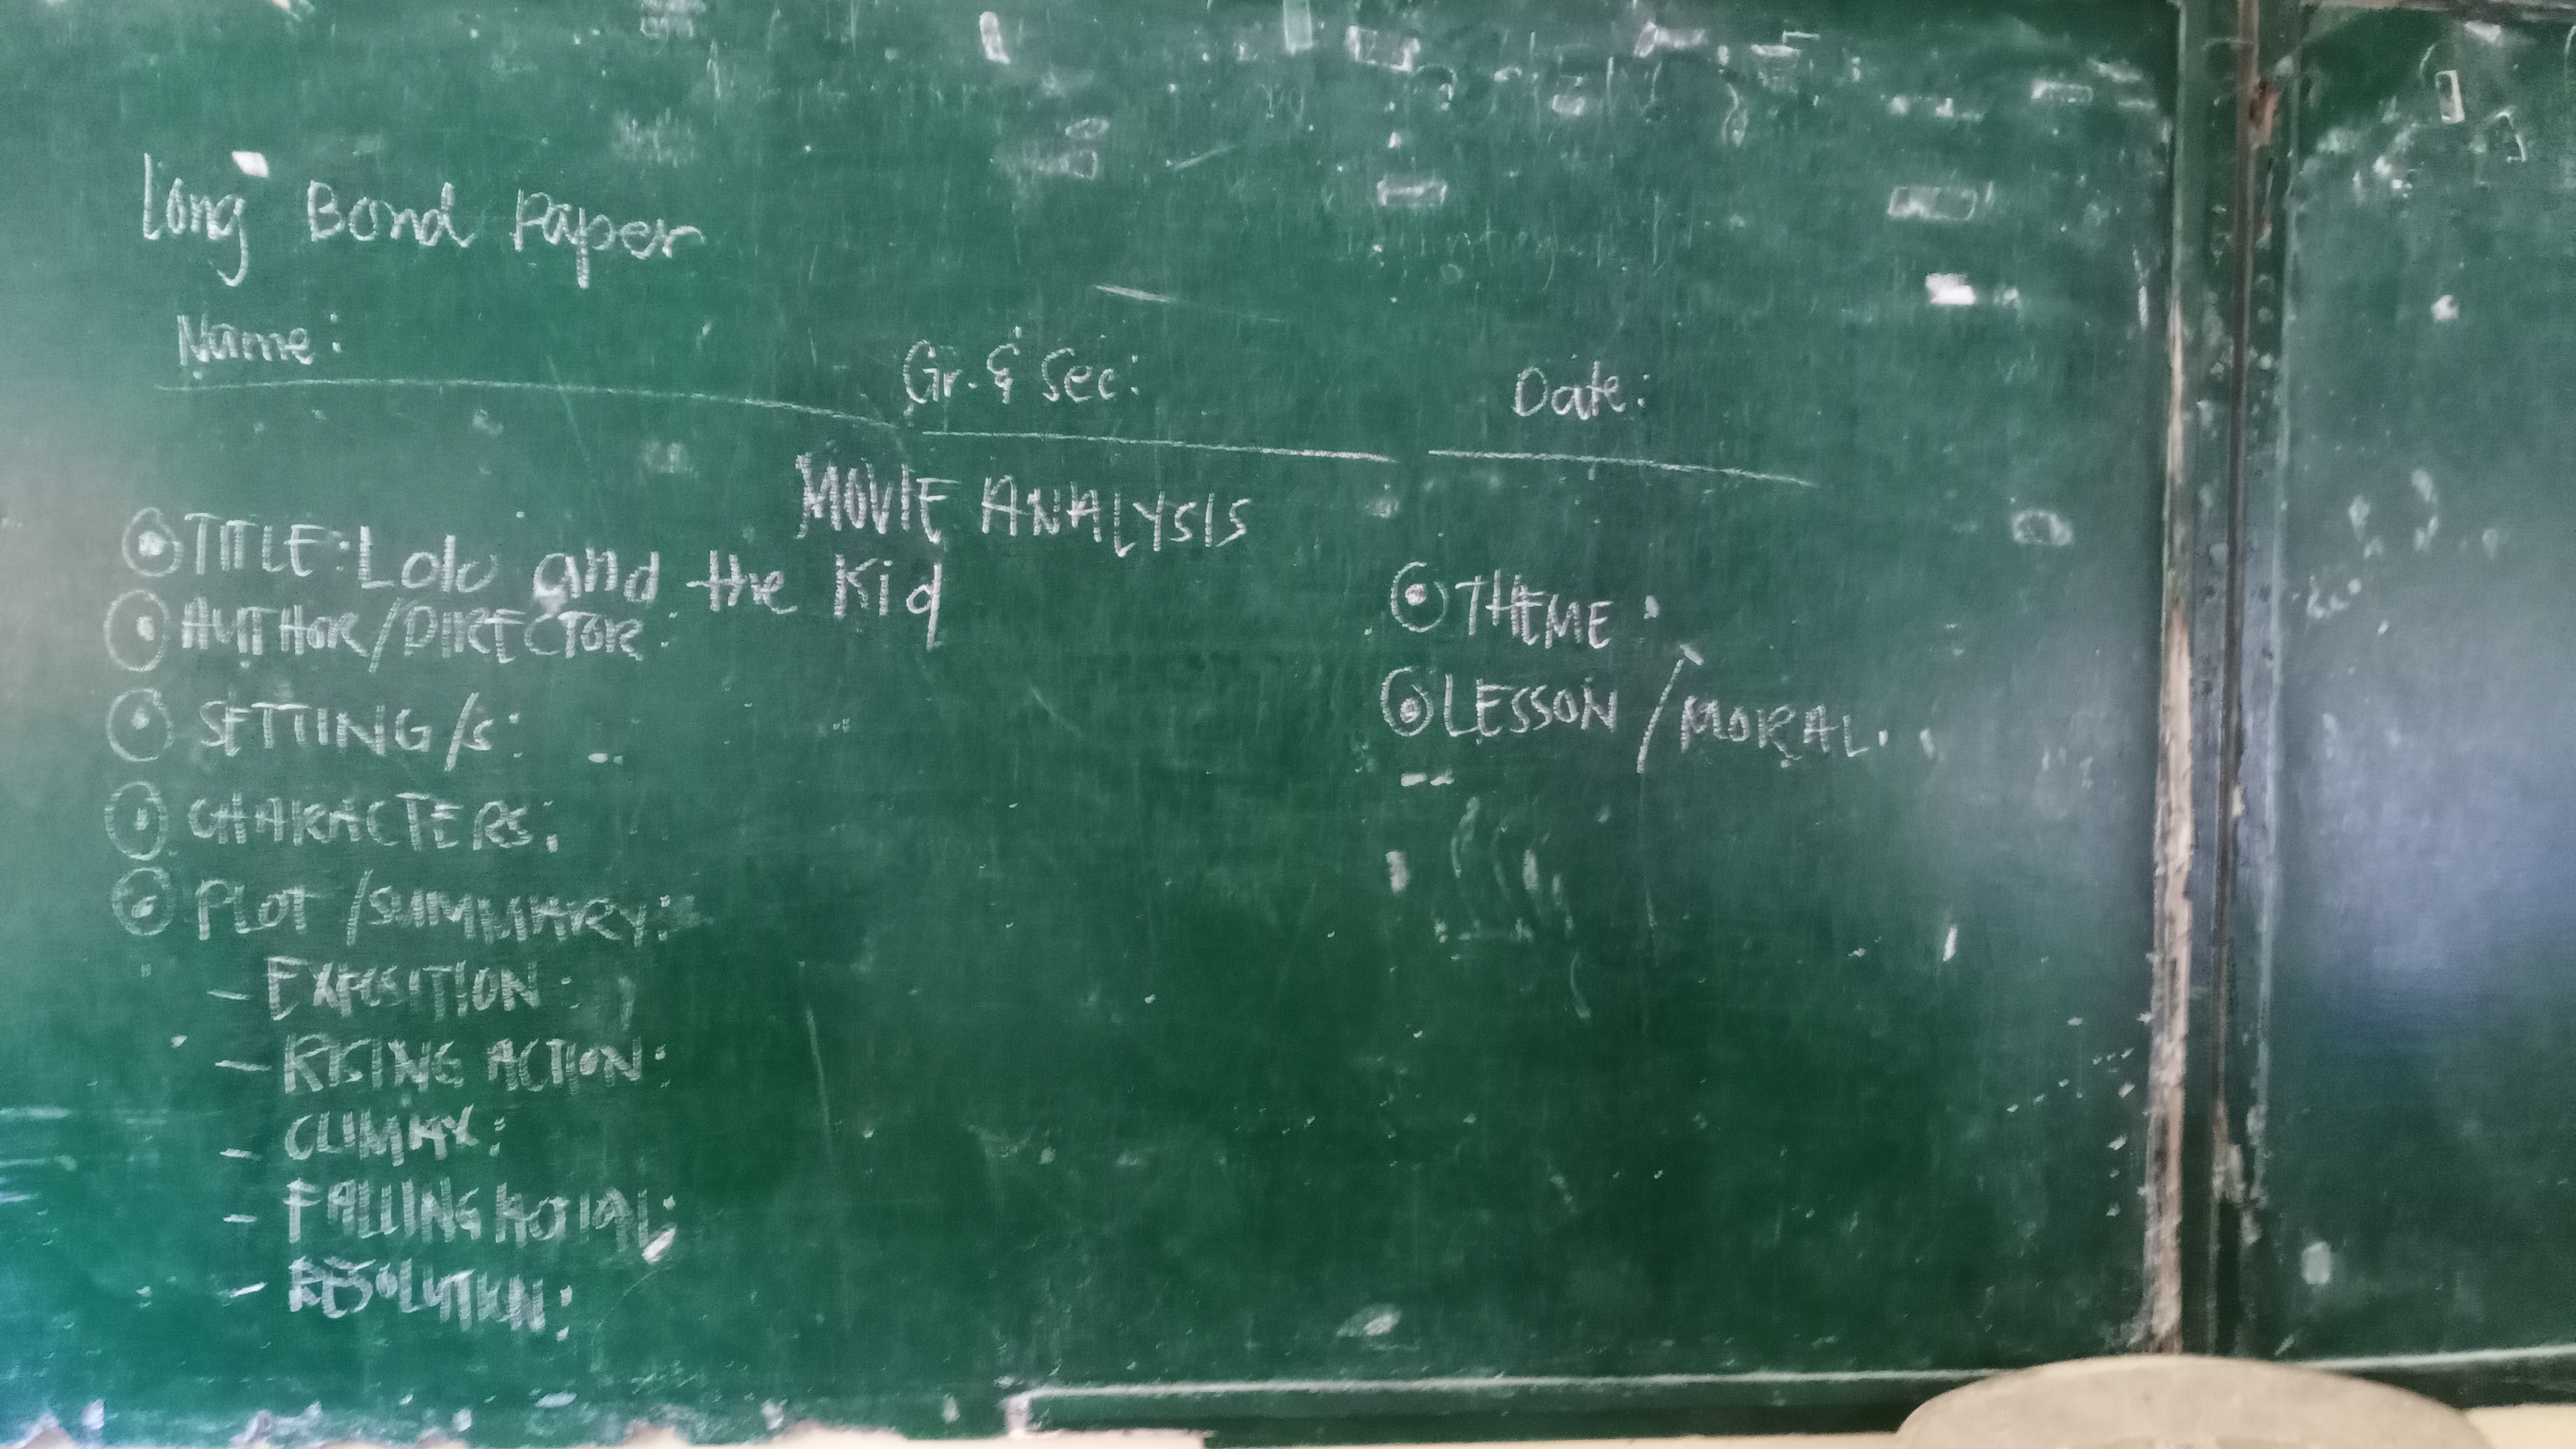 Long Bond Paper
Name: Gr. & Sec: Date:
MOVIE ANALYSIS
TITLE: Lolo and the Kid
AUTHOR/DIRECTOR:
SETTING/s:
CHARACTERS:
PLOT/SUMMARY:
- EXPOSITION:
- RISING ACTION:
- CLIMAX:
- FALLING
- RESOLUTION:
THEME:
LESSON/MORAL.